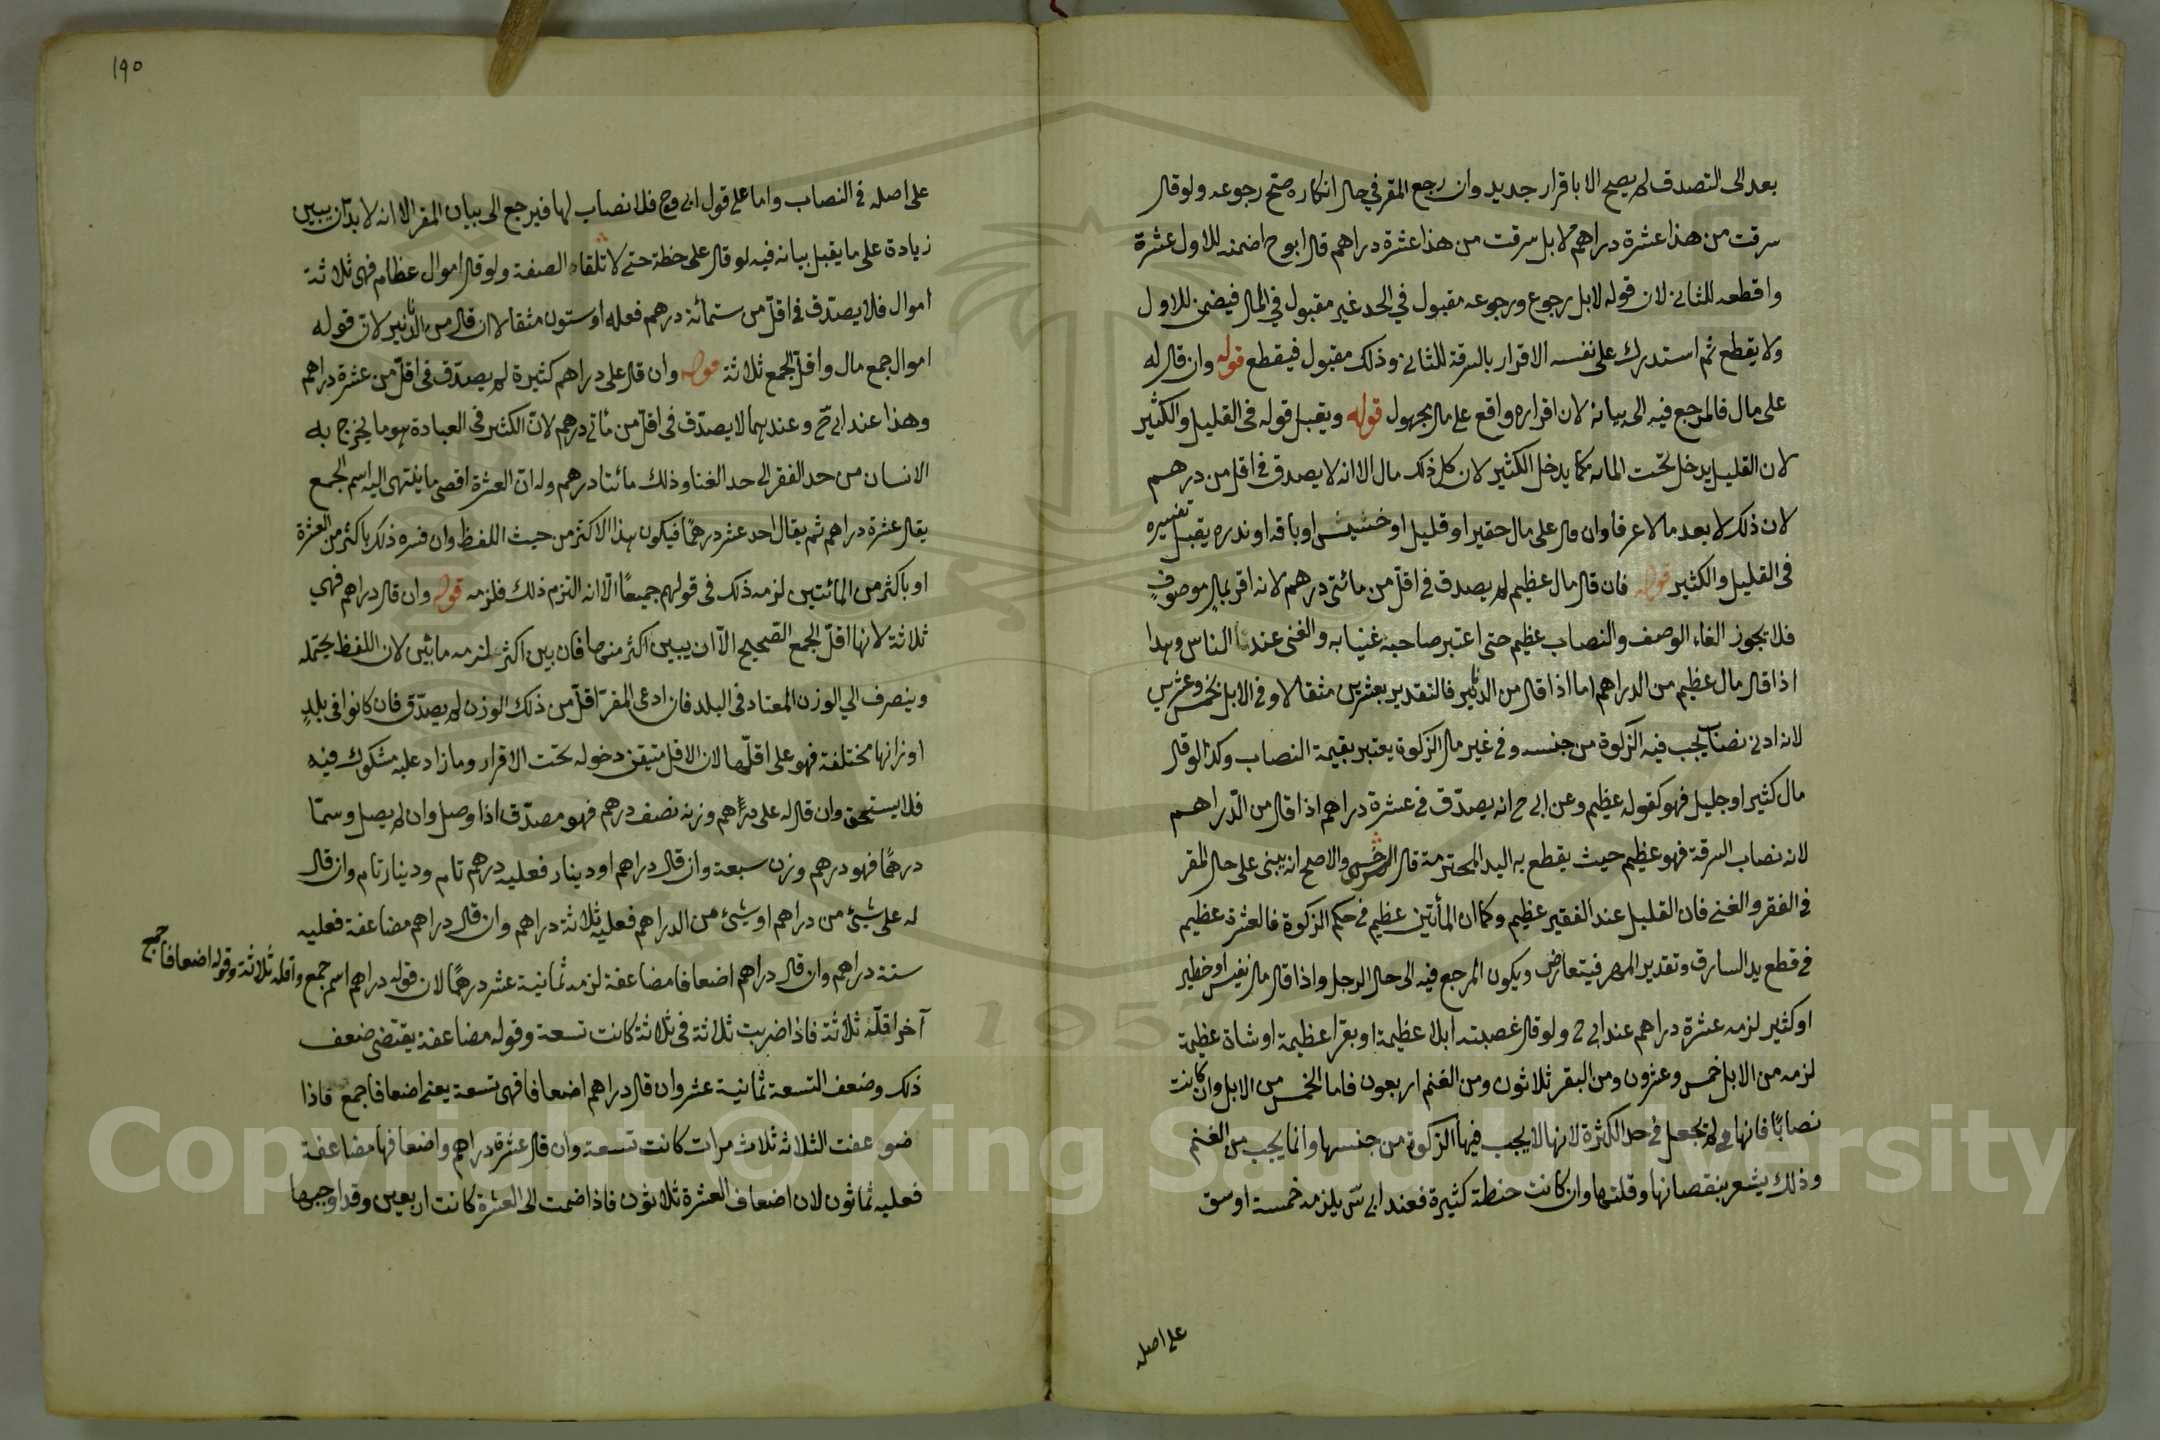 بعد الى التصدق لم يصح الا باقرار جديد وان رجع المقر في حال انكاره صح رجوعه ولو قال
سرقت من هذا عشرة دراهم لا بل سرقت من هذا عشرة دراهم قال ابو ح اضمنه للاول عشرة
واقطعه للثاني لان قوله لا بل رجوع ورجوعه مقبول في الحد غير مقبول في المال فيضمن للاول
ولا يقطع ثم استدرك على نفسه الاقرار بالسرقة للثاني وذلك مقبول فيقطع قوله وان قال له
على مال فالمرجع فيه الى بيانه لان اقراره واقع على مال مجهول قوله ويقبل قوله في القليل والكثير
لان القليل يدخل تحت المال كما يدخل الكثير لان كل ذلك مال الا انه لا يصدق في اقل من درهم
لان ذلك لا يعد مالا عرفا وان قال على مال حقير او قليل او خسيس او باقه او ندره يقبل تفسيره
في القليل والكثير قوله فان قال مال عظيم لم يصدق في اقل من مائتي درهم لانه اقر بمال موصوف
فلا يجوز الغاء الوصف والنصاب عظيم حتى اعتبر صاحبه غنيا به والغنى عند الناس وهذا
اذا قال مال عظيم من الدراهم اما اذا قال من الدنانير فالتقدير بعشرين مثقالا وفي الابل بخمس وعشرين
لانه ادنى نصاب يجب فيه الزكوة من جنسه وفي غير مال الزكوة يعتبر بقيمة النصاب وكذا لو قال
مال كثير او جليل فهو كقوله عظيم وعن ابي ح انه يصدق في عشرة دراهم اذا قال من الدراهم
لانه نصاب السرقة فهو عظيم حيث يقطع به اليد المحترمة قال السرخسي والاصح انه يبنى على حال المقر
في الفقر والغنى فان القليل عند الفقير عظيم وكما ان المأتين عظيم في حكم الزكوة فالعشرة عظيم
في قطع يد السارق وتقدير المهر فيتعارض ويكون المرجع فيه الى حال الرجل واذا قال مال نفيس او خطير
او كثير لزمه عشرة دراهم عند ابي ح ولو قال غصبته ابلا عظيمة او بقرا عظيمة او شاة عظيمة
لزمه من الابل خمس وعشرون ومن البقر ثلاثون ومن الغنم اربعون فاما الخمس من الابل وان كانت
نصابًا فانها لم تجعل في حد الكثرة لانها لا يجب فيها الزكوة من جنسها وانما يجب من الغنم
وذلك يشعر بنقصانها وقلتها وان كانت حنطة كثيرة فعند ابي س يلزمه خمسة اوسق
على اصله
١٩٠
على اصله في النصاب واما على قول ابي ح فلا نصاب لها فيرجع الى بيان المقر الا انه لا بد ان يبين
زيادة على ما يقبل بيانه فيه لو قال على حنطة حتى لا تلغاء الصفة ولو قال اموال عظام فهي ثلاثة
اموال فلا يصدق في اقل من ستمائة درهم فعله او ستون مثقالا ان قال من الدنانير لان قوله
اموال جمع مال واقل الجمع ثلاثة قوله وان قال على دراهم كثيرة لم يصدق في اقل من عشرة دراهم
وهذا عند ابي ح وعندهما لا يصدق في اقل من مأتي درهم لان الكثير في العبادة هو ما يخرج به
الانسان من حد الفقر الى حد الغنا وذلك مائتا درهم وله ان العشرة اقصى ما ينتهى اليه اسم الجمع
يقال عشرة دراهم ثم يقال احد عشر درهمًا فيكون هذا الاكثر من حيث اللفظ وان فسره ذلك باكثر من العشرة
او باكثر من المائتين لزمه ذلك في قولهم جميعًا الا انه التزم ذلك فلزمه قوله وان قال دراهم فهي
ثلاثة لانها اقل الجمع الصحيح الا ان يبين اكثر منها فان بين اكثر لزمه ما بين لان اللفظ يحتمله
وينصرف الي الوزن المعتاد في البلد فان ادعى المقر اقل من ذلك الوزن لم يصدق فان كانوا في بلد
اوزانها مختلفة فهو على اقلها لان الاقل متيقن دخوله تحت الاقرار وما زاد عليه مشكوك فيه
فلا يستحق وان قال له على دراهم وزنه نصف درهم فهو مصدق اذا وصل وان لم يصل وسمّا
درهمًا فهو درهم وزن سبعة وان قال دراهم او دينار فعليه درهم تام ودينار تام وان قال
له على شيئ من دراهم او شيئ من الدراهم فعليه ثلاثة دراهم وان قال دراهم مضاعفة فعليه
ستة دراهم وان قال دراهم اضعافا مضاعفة لزمه ثمانية عشر درهمًا لان قوله دراهم اسم جمع واقله ثلاثة وقوله اضعافا جمع
آخر اقله ثلاثة فاذا ضربت ثلاثة في ثلاثة كانت تسعة وقوله مضاعفة يقتضى ضعف
ذلك وضعف التسعة ثمانية عشر وان قال دراهم اضعافا فهي تسعة يعني اضعافا جمع فاذا
ضوعفت الثلاثه ثلاث مرات كانت تسعة وان قال عشرة دراهم واضعافها مضاعفة
فعليه ثمانون لان اضعاف العشرة ثلاثون فاذا ضمت الى العشرة كانت اربعين وقد اوجبها
Copyright © King Saud University
1957